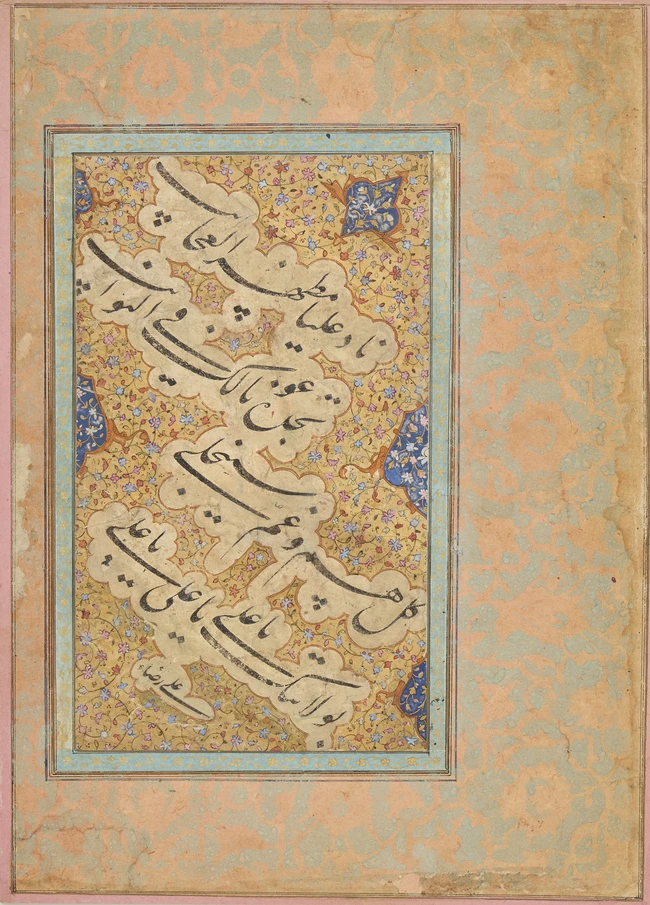 ناد علیا مظهر العجایب
تجده عونا لک فی النوایب
کل هم و غم سینجلی
بولایتک یا علی یا علی یا علی
علی رضا